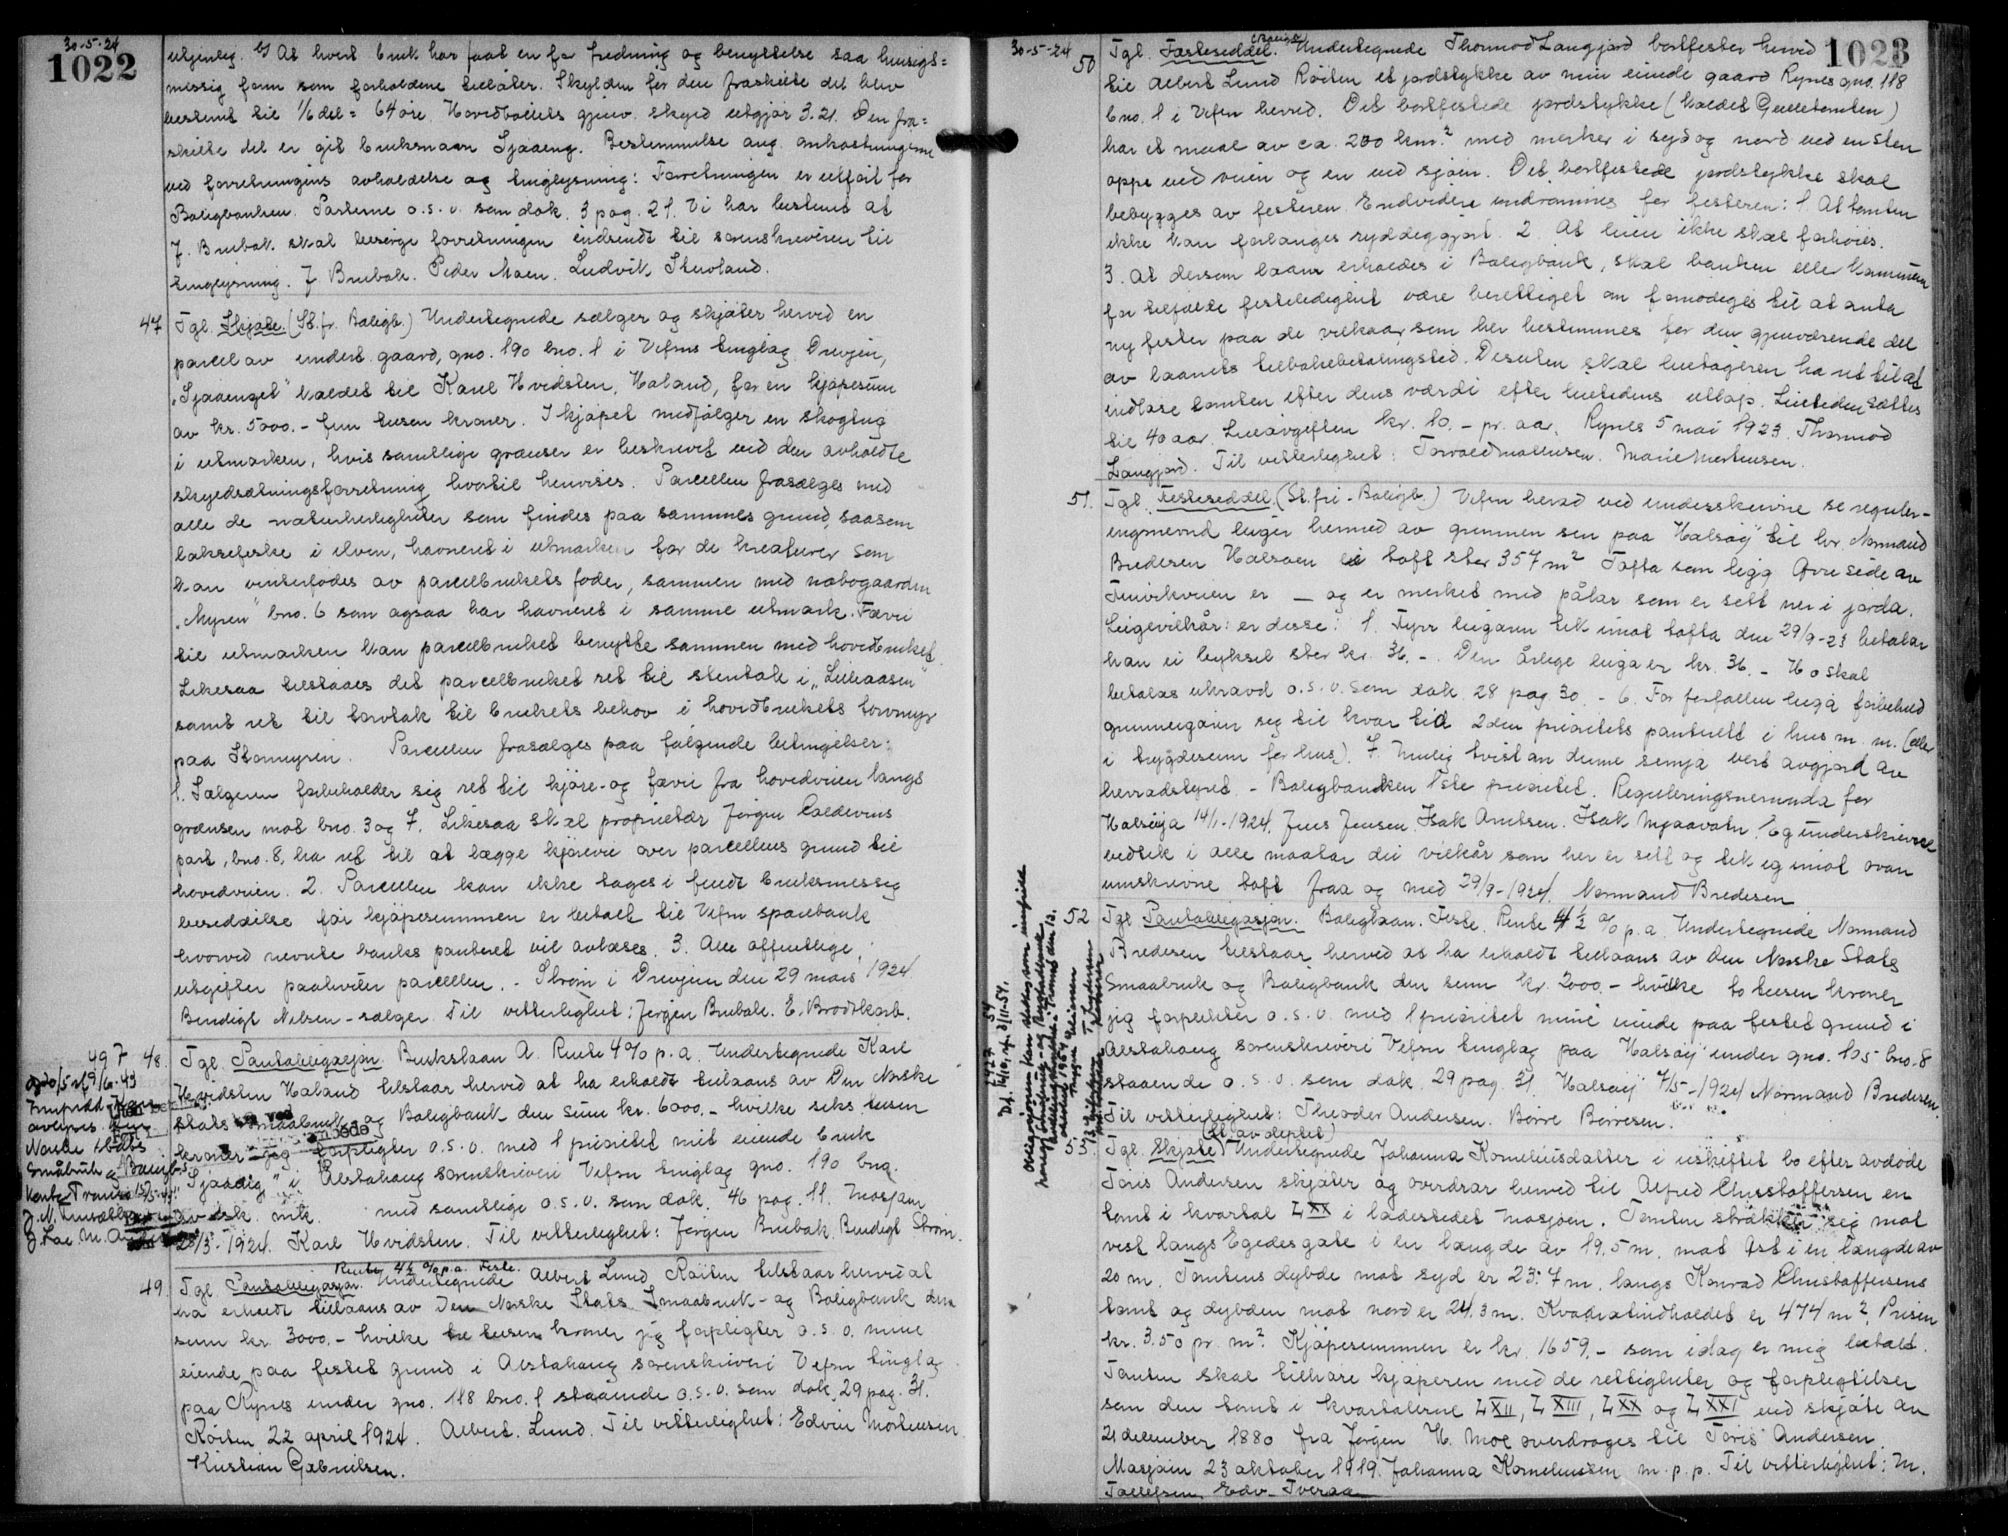 30-5-24
1022
utjenlig. b) At hvert bruk har faat en for fredning og benyttelse saa hensigts=
messig form som forholdene tillater. Skylden for den fraskilte del blev
bestemt til 1/6 del = 64 øre. Hovedbølets gjenv. skyld utgjør 3.21. Den fra=
skilte del er git bruksnavn Sjaaeng. Bestemmelse ang. omkostningerne
ved forretningens avholdelse og tinglysning: Forretningen er utført for
Boligbanken. Parterne o.s.v. som dok. 3 pag. 21. Vi har bestemt at
J. Brubak skal besørge forretningen indsendt til sorenskriveren til
tinglysning. J Brubak. Peder Moen. Ludvik Stuvland.
47 Tgl. Skjøte. (St. fr. Boligb.) Undertegnede sælger og skjøter herved en
parcel av undert. gaard, gno. 190 bno. 1 i Vefsns tinglag Drevjen,
"Sjaaenget" kaldet til Karl Hvidsten, Høland, for en kjøpesum
av kr. 5000.- fem tusen kroner. I kjøpet medfølger en skogteig
i utmarken, hvis samtlige grænser er beskrevet ved den avholdte
skyldsætningsforretning hvortil henvises. Parcellen frasælges med
alle de naturherligheter som findes paa sammes grund, saasom
laksefiske i elven, havneret i utmarken for de kreaturer som
kan vinterfødes av parcelbrukets foder, sammen med nabogaarden
"Myren" bno. 6 som ogsaa har havneret i samme utmark. Fævei
til utmarken kan parcelbruket benytte sammen med hovedbruket.
Likesaa tilstaaes det parcelbruket ret til stentak i "Liaasen"
samt ret til torvtak til brukets behov i hovedbrukets torvmyr
paa Stormyren. Parcellen frasælges paa følgende betingelser:
1. Sælgeren forbeholder sig ret til kjøre- og fævei fra hovedveien langs
grænsen mot bno. 3 og 7. Likesaa skal proprietær Jørgen Coldevins
part, bno. 8, ha ret til at lægge kjørevei over parcellens grund til
hovedveien. 2. Parcellen kan ikke tages i fuldt bruksmessig
besiddelse før kjøpesummen er betalt til Vefsn sparebank
hvorved nevnte banks panteret vil avløses. 3. Alle offentlige
utgifter paahviler parcellen. - Strøm i Drevjen den 29 mars 1924.
Bendigt Nilsen - sælger. Til vitterlighet: Jørgen Brubak. E. Brodtkorb.
48. Tgl. Pantobligasjon. Brukslaan A. Rente 4% p.a. Undertegnede Karl
Hvidsten Høland tilstaar herved at ha erholdt tillaans av Den Norske
Stats Smaabruk- og Boligbank den sum kr. 6000.- hvilke seks tusen
kroner jeg forpligter o.s.v. med 1 prioritet mit eiende bruk
"Sjaaeng" i Alstahaug sorenskriveri Vefsn tinglag gno. 190 bno.
av sk. mk. med samtlige o.s.v. som dok. 46 pag. 11. Mosjøen
28/3-1924. Karl Hvidsten. Til vitterlighet: Jørgen Brubak. Bendigt Strøm.
Rente 4½ % p.a. Feste.
49. Tgl. Pantobligasjon. Undertegnede Albert Lund Røiten tilstaar herved at
ha erholdt tillaans av Den Norske Stats Smaabruk- og Boligbank den
sum kr. 3000.- hvilke tre tusen kroner jeg forpligter o.s.v. mine
eiende paa festet grund i Alstahaug sorenskriveri Vefsn tinglag
paa Rynes under gno. 118 bno. 1 staaende o.s.v. som dok. 29 pag. 31.
Røiten 22 april 1924. Albert Lund. Til vitterlighet: Edvin Mortensen
Kristian Gabrielsen.
30-5-24
1023
(Boligb)
50 Tgl. Festeseddel. Undertegnede Thormod Langjord bortfester herved
til Albert Lund Røiten et jordstykke av min eiende gaard Rynes gno. 118
bno. 1 i Vefsn herred. Det bortfestede jordstykke (kaldet Qvilletomten)
har et maal av ca. 200 kvm.² med merker i syd og nord ved en sten
oppe ved veien og en ved sjøen. Det bortfestede jordstykke skal
bebygges av festeren. Endvidere indrømmes for festeren: 1. At tomten
ikke kan forlanges ryddeggjort. 2. At leien ikke skal forhøies.
3. At dersom laan erholdes i Boligbank, skal banken eller kommunen
for tilfælde festeledighet være berettiget om fornødiges til at anta
ny fester paa de vilkaar som her bestemmes for den gjenværende del
av laanets tilbakebetalingstid. Desuten skal leietageren ha ret til at
indløse tomten efter dens værdi efter leietidens utløp. Leietiden sættes
til 40 aar. Leieavgiften kr. 10.- pr. aar. Rynes 5 mai 1923. Thormod
Langjord. Til vitterlighet: Torvald Mattensen. Marie Mortensen.
51. Tgl. Festeseddel (St. fri - Boligb.) Vefsn herad ved underskrivne se reguler-
ingsnevnd leiger hermed av grunnen sin paa Halsøy til hr. Normand
Bredesen Halsøen ei toft stor 357 m² Tofta som ligg øvre side av
Tenvikveien er — og er merket med pålar som er sett ner i jorda.
Leigevilkår: er desse: 1. Fyrr leigaren tek imot tofta den 29/9-23 betalar
han ei byksel stor kr. 36.-. Den årlege leiga er kr. 36.- Ho skal
betalas ukravd o.s.v. som dok 28 pag 30. - 6. For forfallen leiga forbeheld
grunneigaren seg til kvar tid 2den prioritets panterett i hus m.m. (eller
i brygdesum for hus). 7. Mulig tvist om denne semja vert avgjord av
herradstyret. - Boligbanken 1ste prioritet. Reguleringsnemnda for
Halsøya 14/1-1924. Jens Jensen. Isak Arntsen. Isak Mjaavatn. Eg underskrivne
vedtek i alle maatar dei vilkår som her er sett og tek eg imot ovan
umskrivne toft fraa og med 29/9-1924. Normand Bredesen
52 Tgl. Pantobligasjon. Boliglaan. Feste. Rente 4½ % p.a. Undertegnede Normand
Bredesen tilstaar herved at ha erholdt tillaans av Den Norske Stats
Smaabruk og Boligbank den sum kr. 2000.- hvilke to tusen kroner
jeg forpligter o.s.v. med 1 prioritet mine eiende paa festet grund i
Alstahaug sorenskriveri Vefsn tinglag paa "Halsøy" under gno. 105 bno. 8
staaende o.s.v. som dok. 29 pag. 31. Halsøy 7/5-1924 Normand Bredesen.
Til vitterlighet: Theodor Andersen. Børre Børresen.
53. Tgl. Skjøte) Undertegnede Johanna Korneliusdatter i uskiftet bo efter avdøde
Toris Andersen skjøter og overdrar herved til Alfred Christoffersen en
tomt i kvartal L XX i ladestedet Mosjøen. Tomten strækker sig mot
vest langs Egedes gate i en længde av 19.5 m, mot øst i en længde av
20 m. Tomtens dybde mot syd er 23.7 m. langs Konrad Christoffersens
tomt og dybden mot nord er 24.3 m. Kvadratindholdet er 474 m². Prisen
kr. 3.50 pr. m². Kjøpesummen er kr. 1659.- som idag er mig betalt.
Tomten skal tilhøre kjøperen med de rettigheter og forpligtelser
som den tomt i kvartalerne L XII, L XIII, L XX og L XXI ved skjøte av
21 december 1880 fra Jørgen H. Moe overdrages til Toris Andersen.
Mosjøen 23 oktober 1919. Johanna Korneliussen m.p.p. Til vitterlighet: M.
Tollefsen. Edv. Tveraa